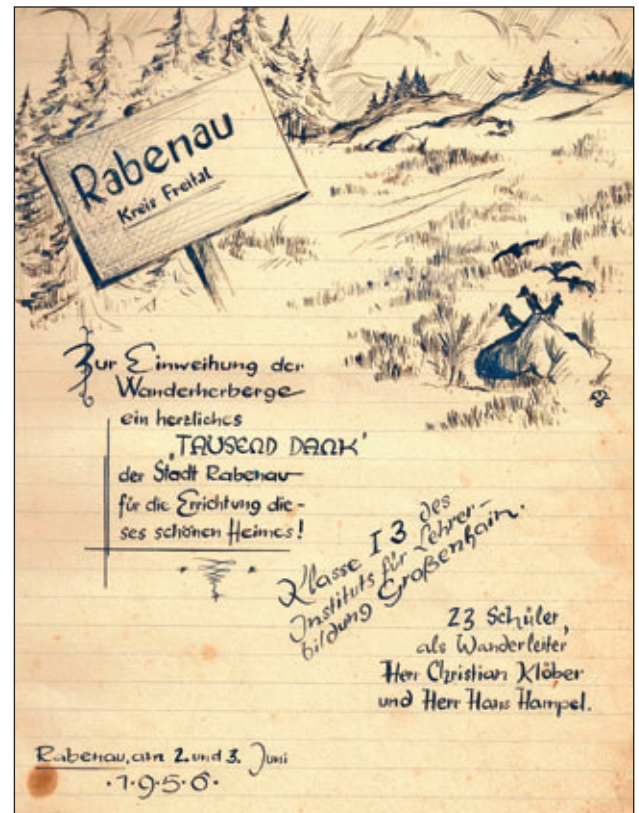 Rabenau
Kreis Freital
Zur Einweihung der
Wanderherberge
ein herzliches
"TAUSEND DANK"
der Stadt Rabenau
für die Errichtung die-
ses schönen Heimes!
Klasse I 3 des
Instituts für Lehrer-
bildung Großenhain.
23 Schüler,
als Wanderleiter
Herr Christian Klöber
und Herr Hans Hampel.
Rabenau, am 2. und 3. Juni
·1·9·5·6·